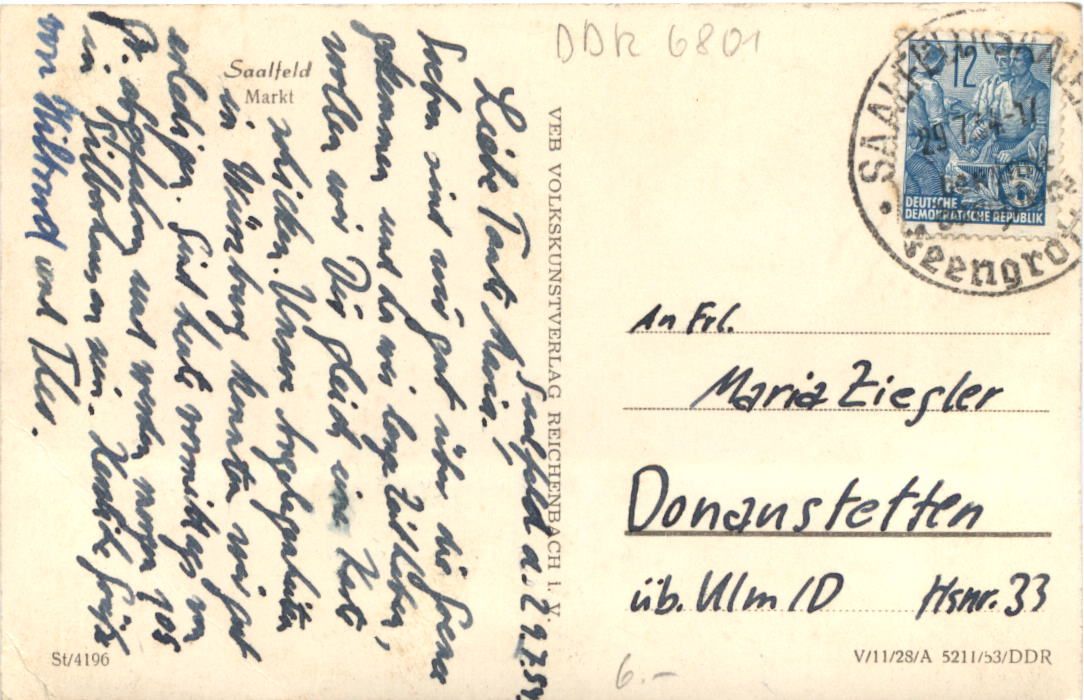 DDR 6801
Saalfeld
Markt
Saalfeld a. 29.7.54.
Liebe Tante Maria!
Soeben sind wir gut über die Grenze
gekommen und da wir lange Zeit haben,
wollen wir Dir gleich eine Karte
schicken. Unsere Angelegenheiten
in Würzburg konnten wir gut
erledigen. Sind heute vormittags von
abgefahren und werden morgen
in nein. Herzliche Grüße
von Wiltrud und Theo.
VEB VOLKSKUNSTVERLAG REICHENBACH i. V.
12
DEUTSCHE
DEMOKRATISCHE REPUBLIK
SAALFELD (SAALE)
29.7.54-17
Feengrotten
An Frl.
Maria Ziegler
Donaustetten
üb. Ulm/D Hsnr. 33
St/4196
6.-
V/11/28/A 5211/53/DDR